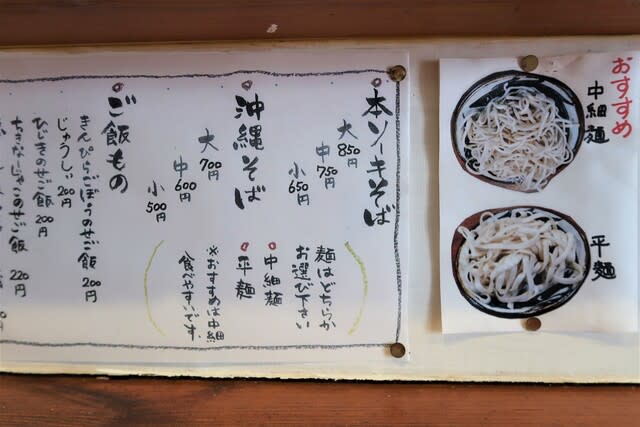 おすすめ
中細麺
平麺
本ソーキそば
大 850
中 750
小 650
沖縄そば
大 700
中 600
小 500
麺はどちらか
お選び下さい
中細麺
平麺
※おすすめは中細
食べやすいです。
ご飯もの
きんぴらごぼうのせご飯 200円
じゅうしぃ 200円
ひじきのせご飯 200円
ちきなじゃこのせご飯 220円